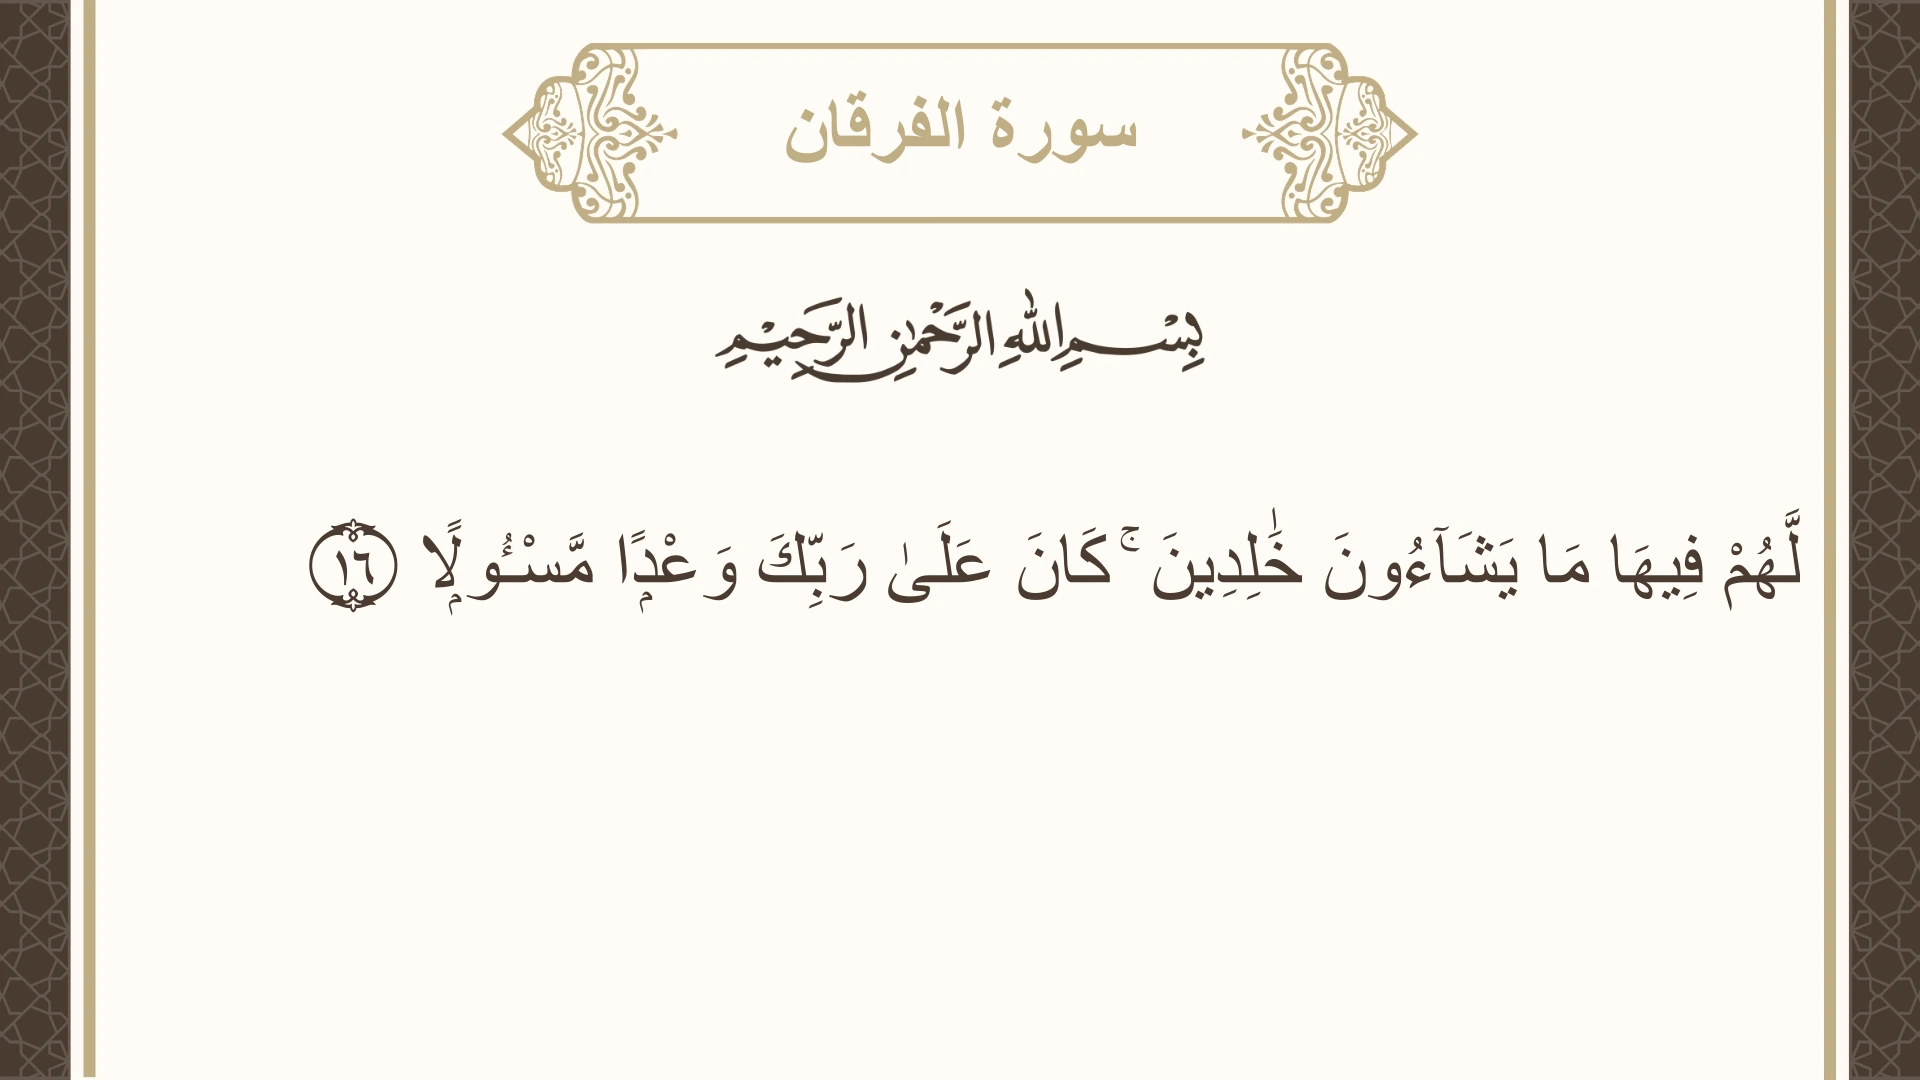 سورة الفرقان
بِسْمِ اللهِ الرَّحْمٰنِ الرَّحِيْمِ
لَّهُمْ فِيهَا مَا يَشَآءُونَ خَٰلِدِينَ ۚ كَانَ عَلَىٰ رَبِّكَ وَعْدًۭا مَّسْـُٔولًۭا ١٦